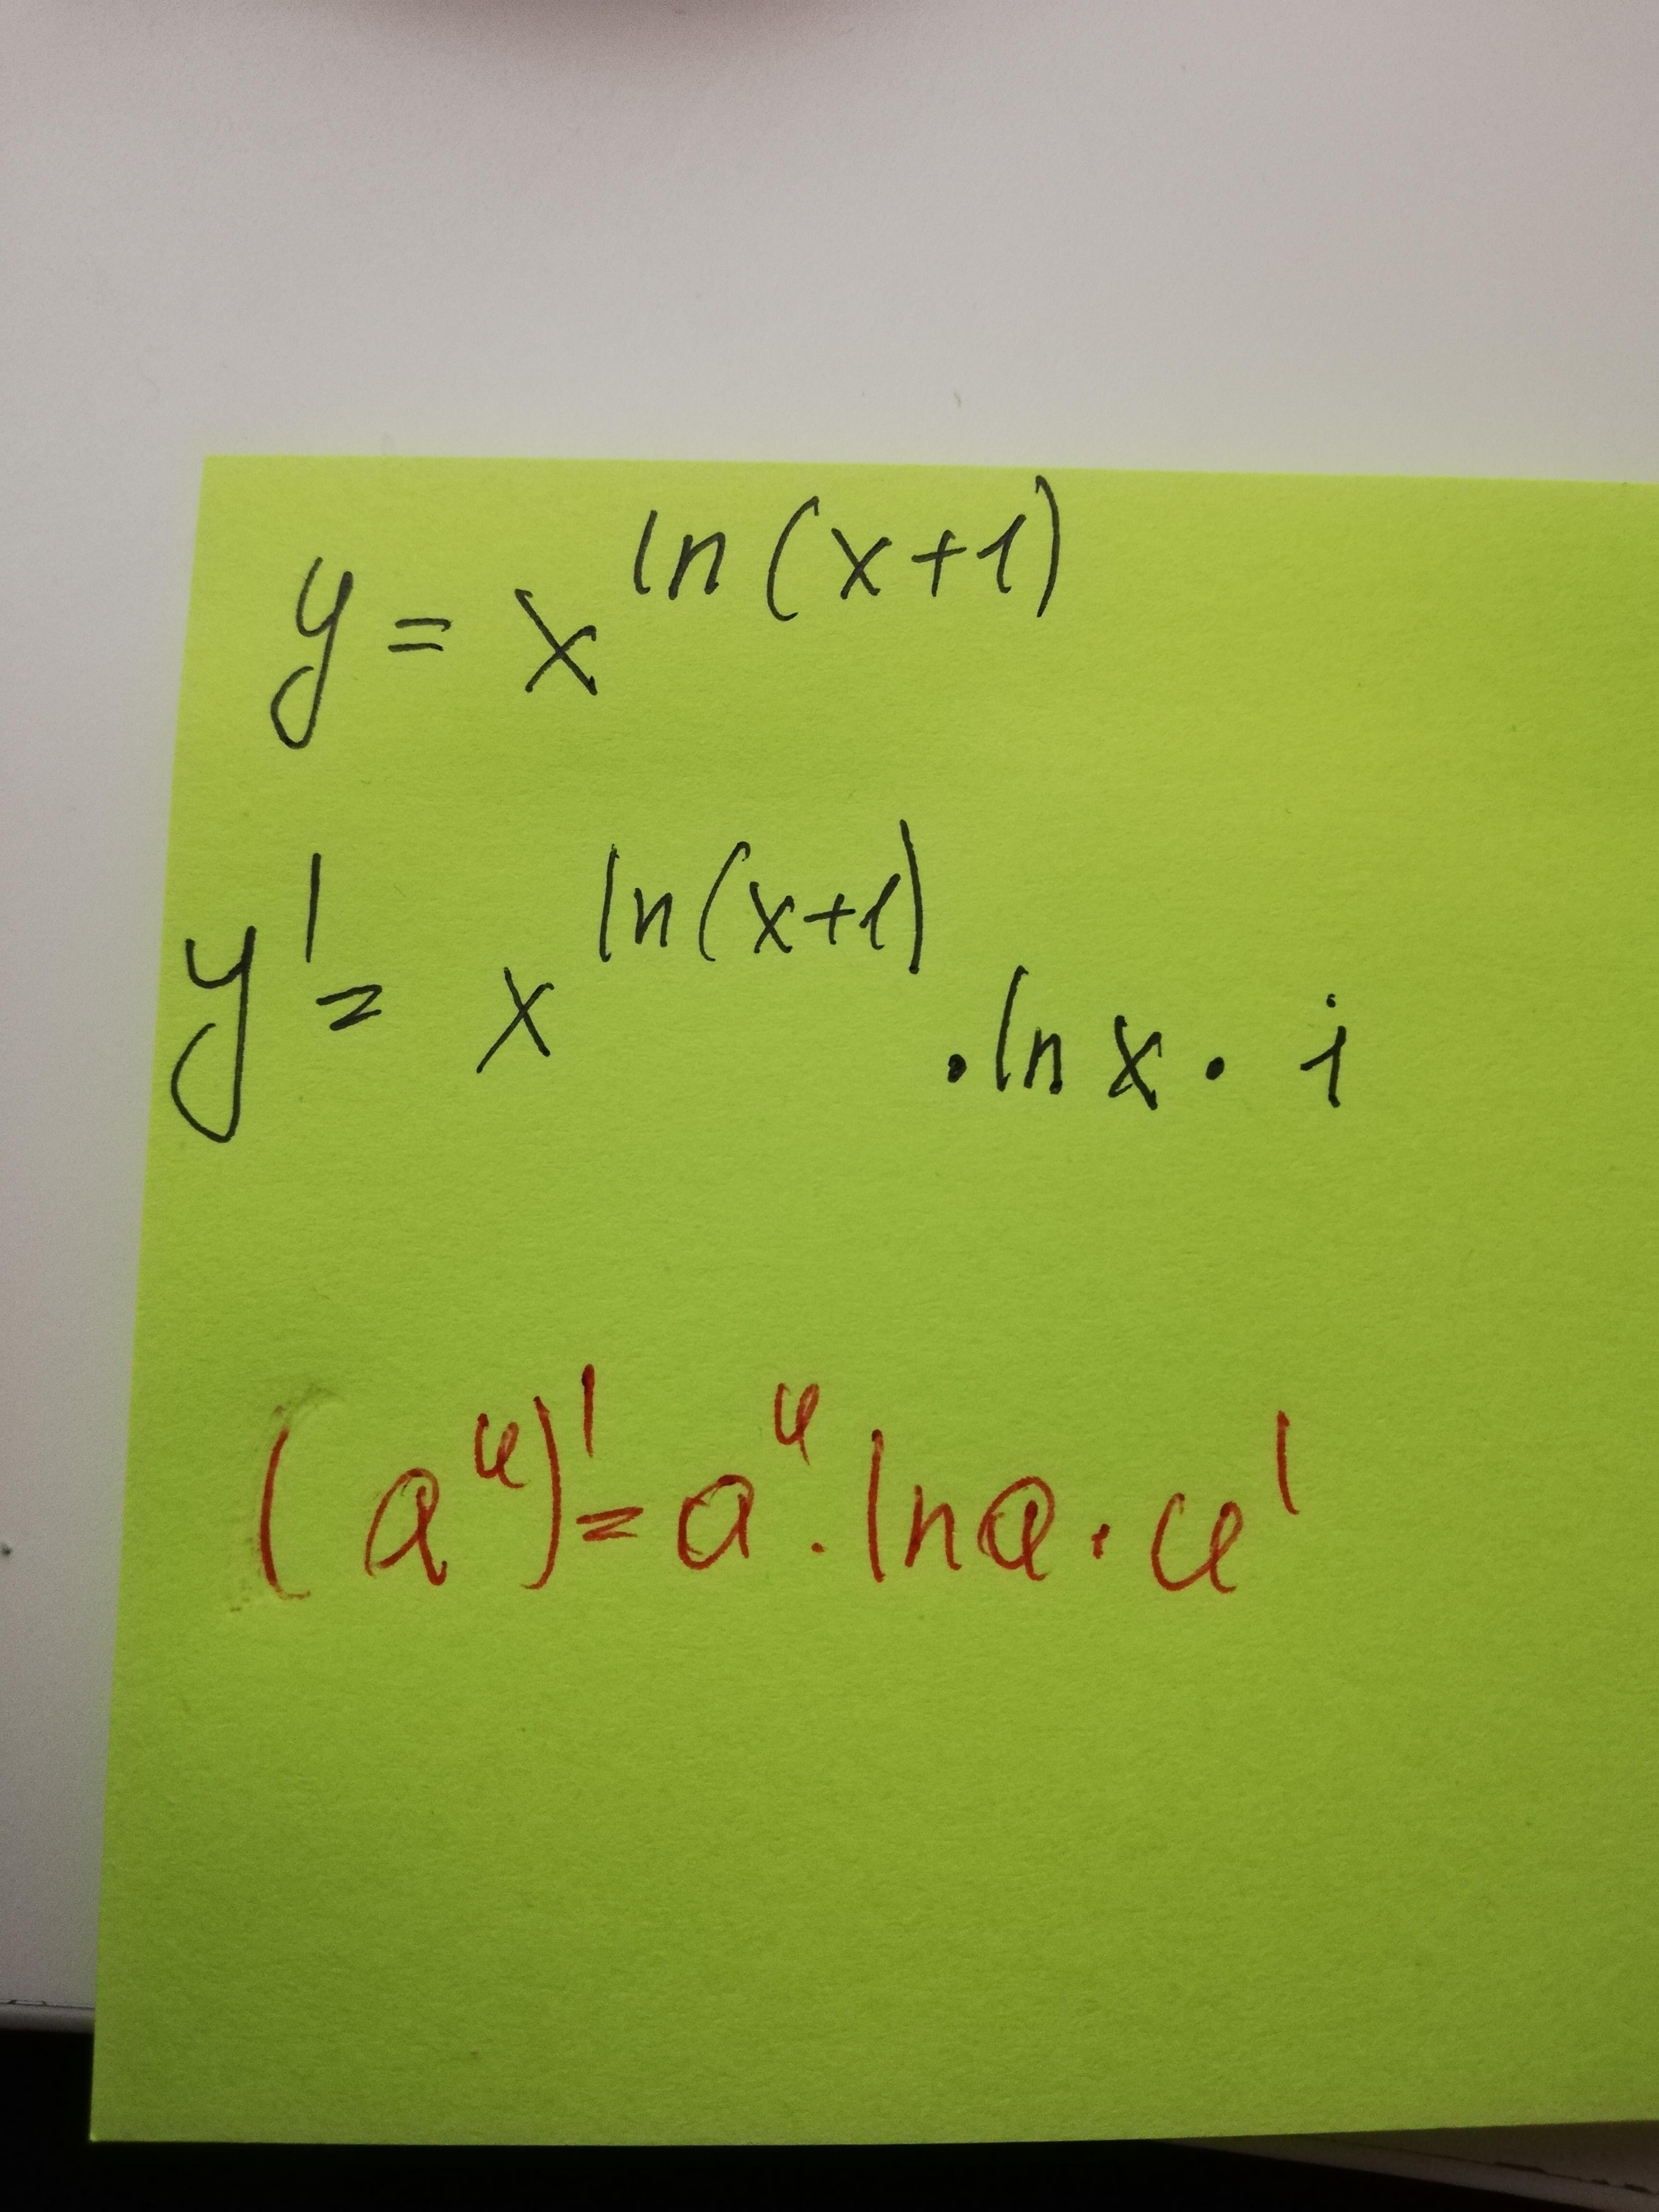 y = x^ln(x+1)
y' = x^ln(x+1) · ln x · i
(a^u)' = a^u · ln a · u'